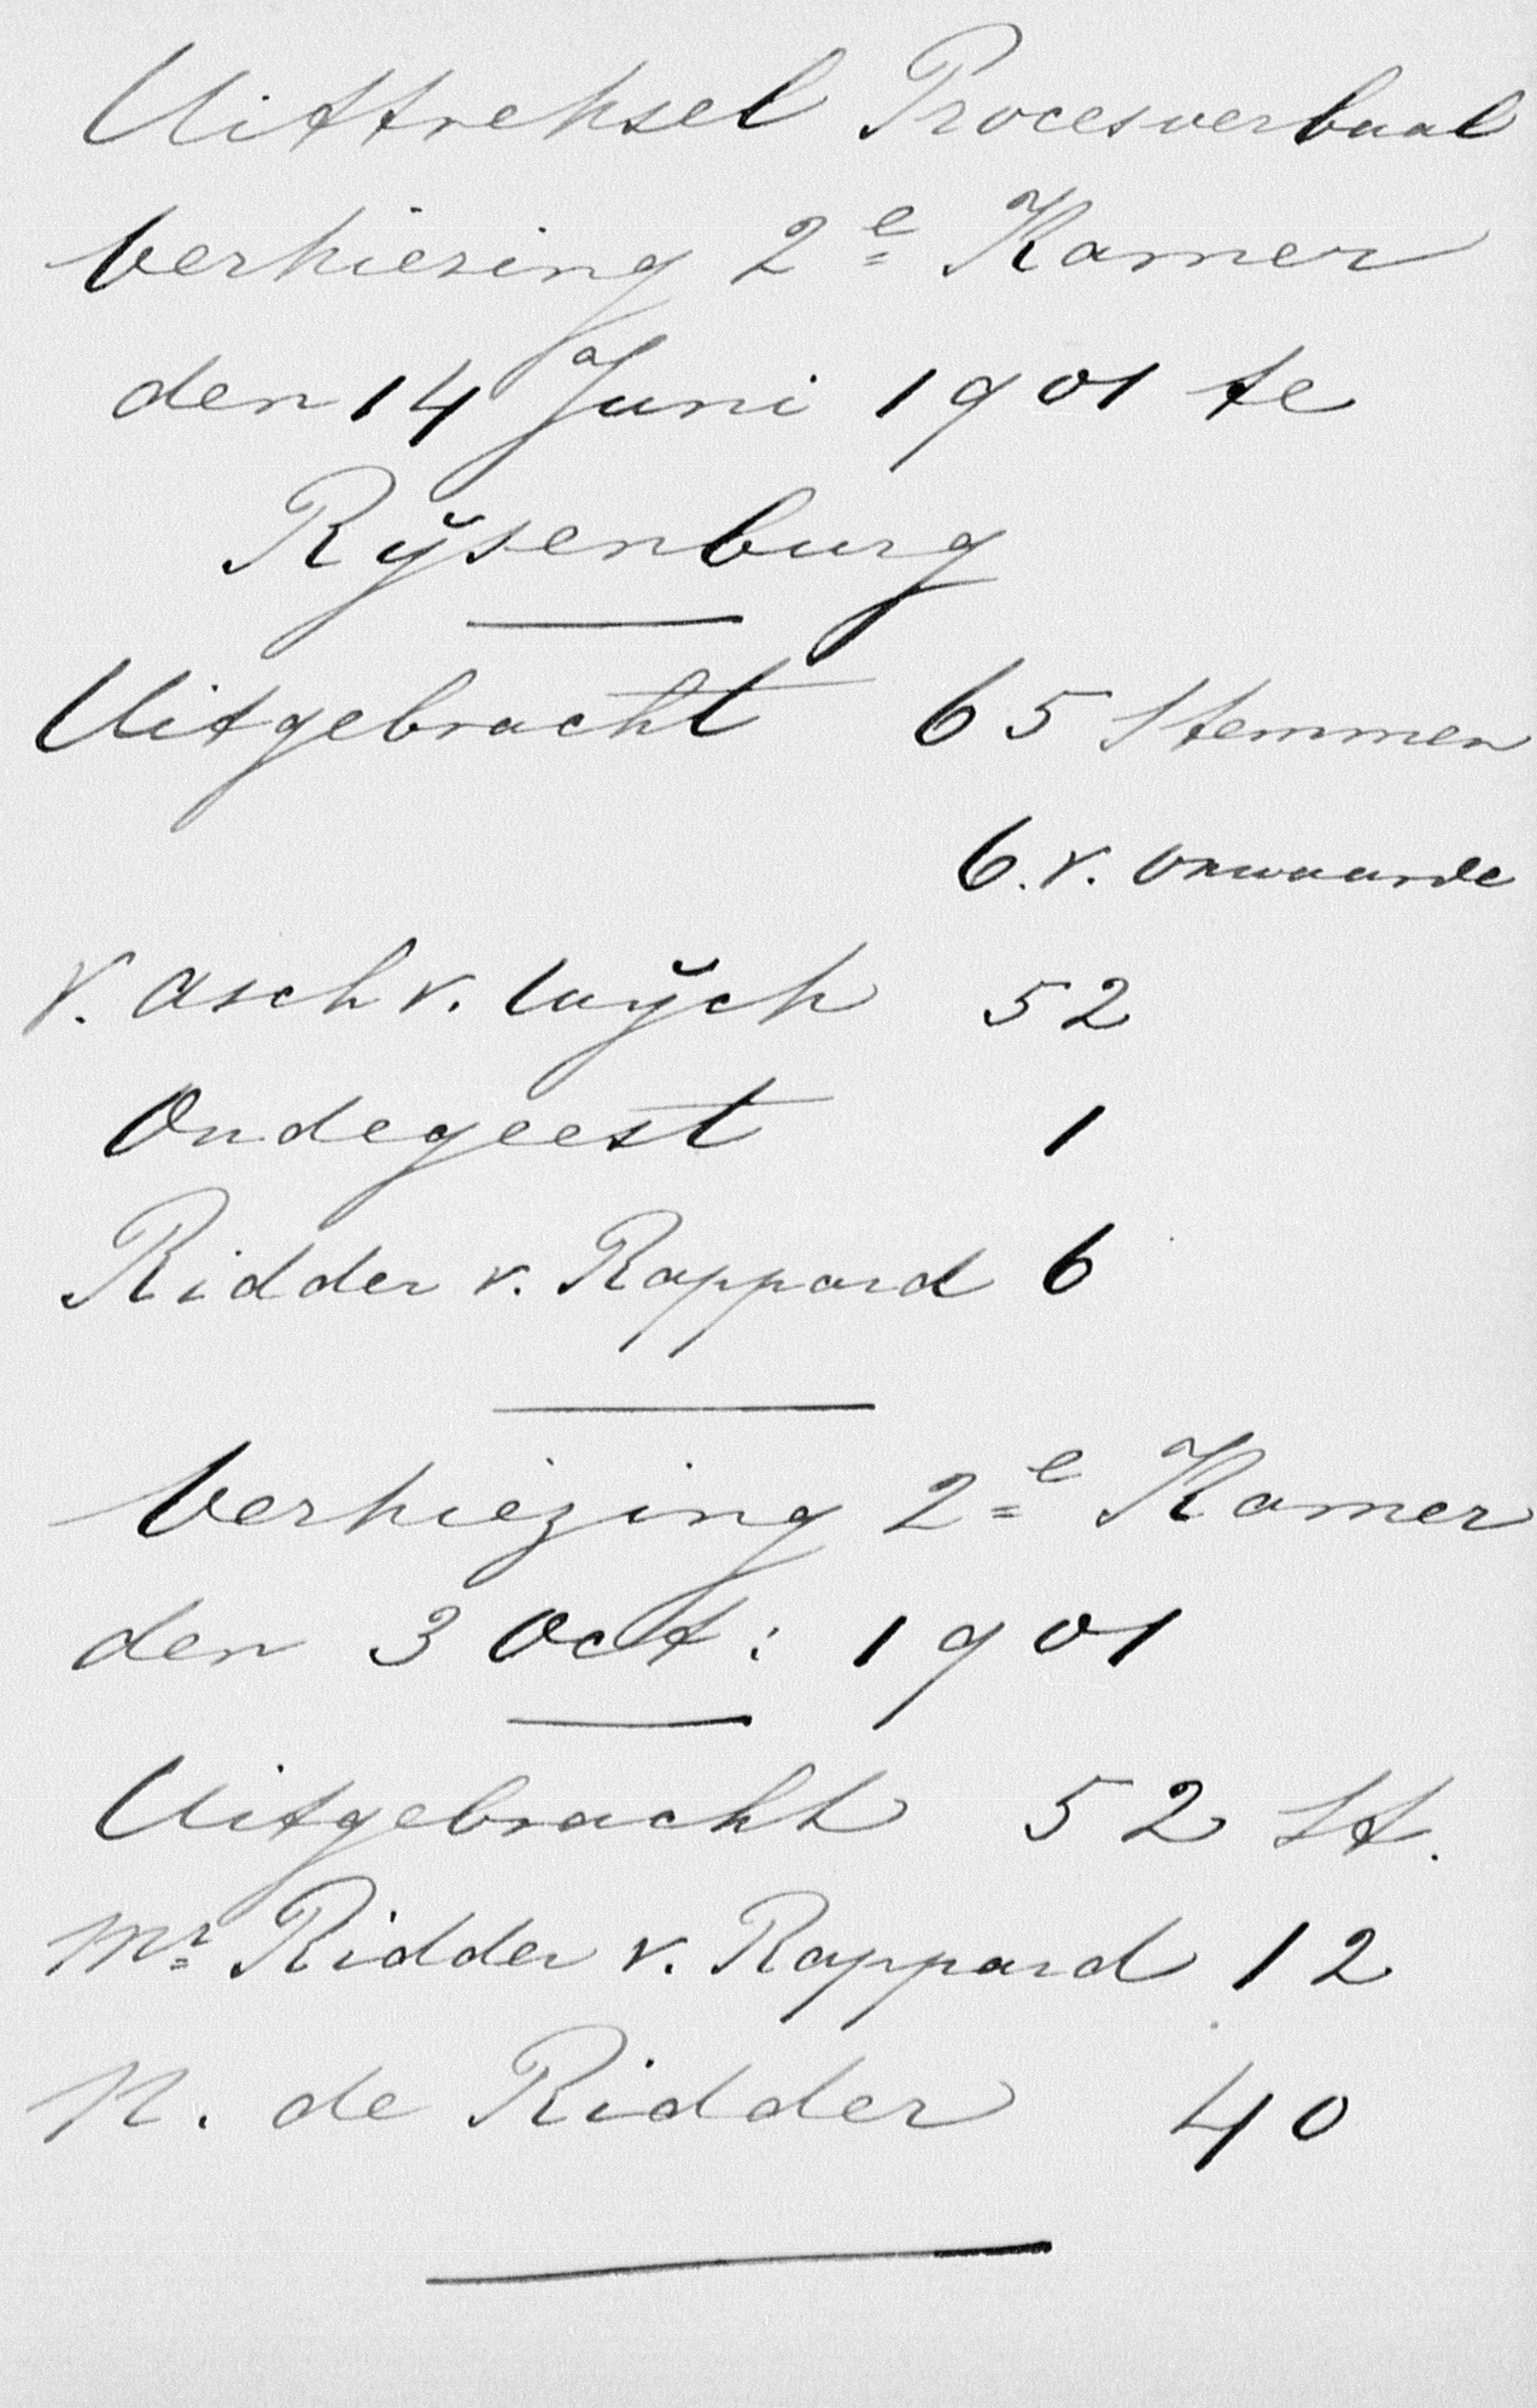 Uittreksel Procesverbaal
Verkiezing 2e Kamer
den 14 Juni 1901 te
Rÿsenburg
Uitgebracht 65 Stemmen
6. v. Onwaarde
V. Asch v. Wÿck 52
Oudegeest 1
Ridder v. Rappard 6
Verkiezing 2e Kamer
den 3 Oct: 1901
Uitgebracht 52 St.
Mr Ridder v. Rappard 12
N. de Ridder 40